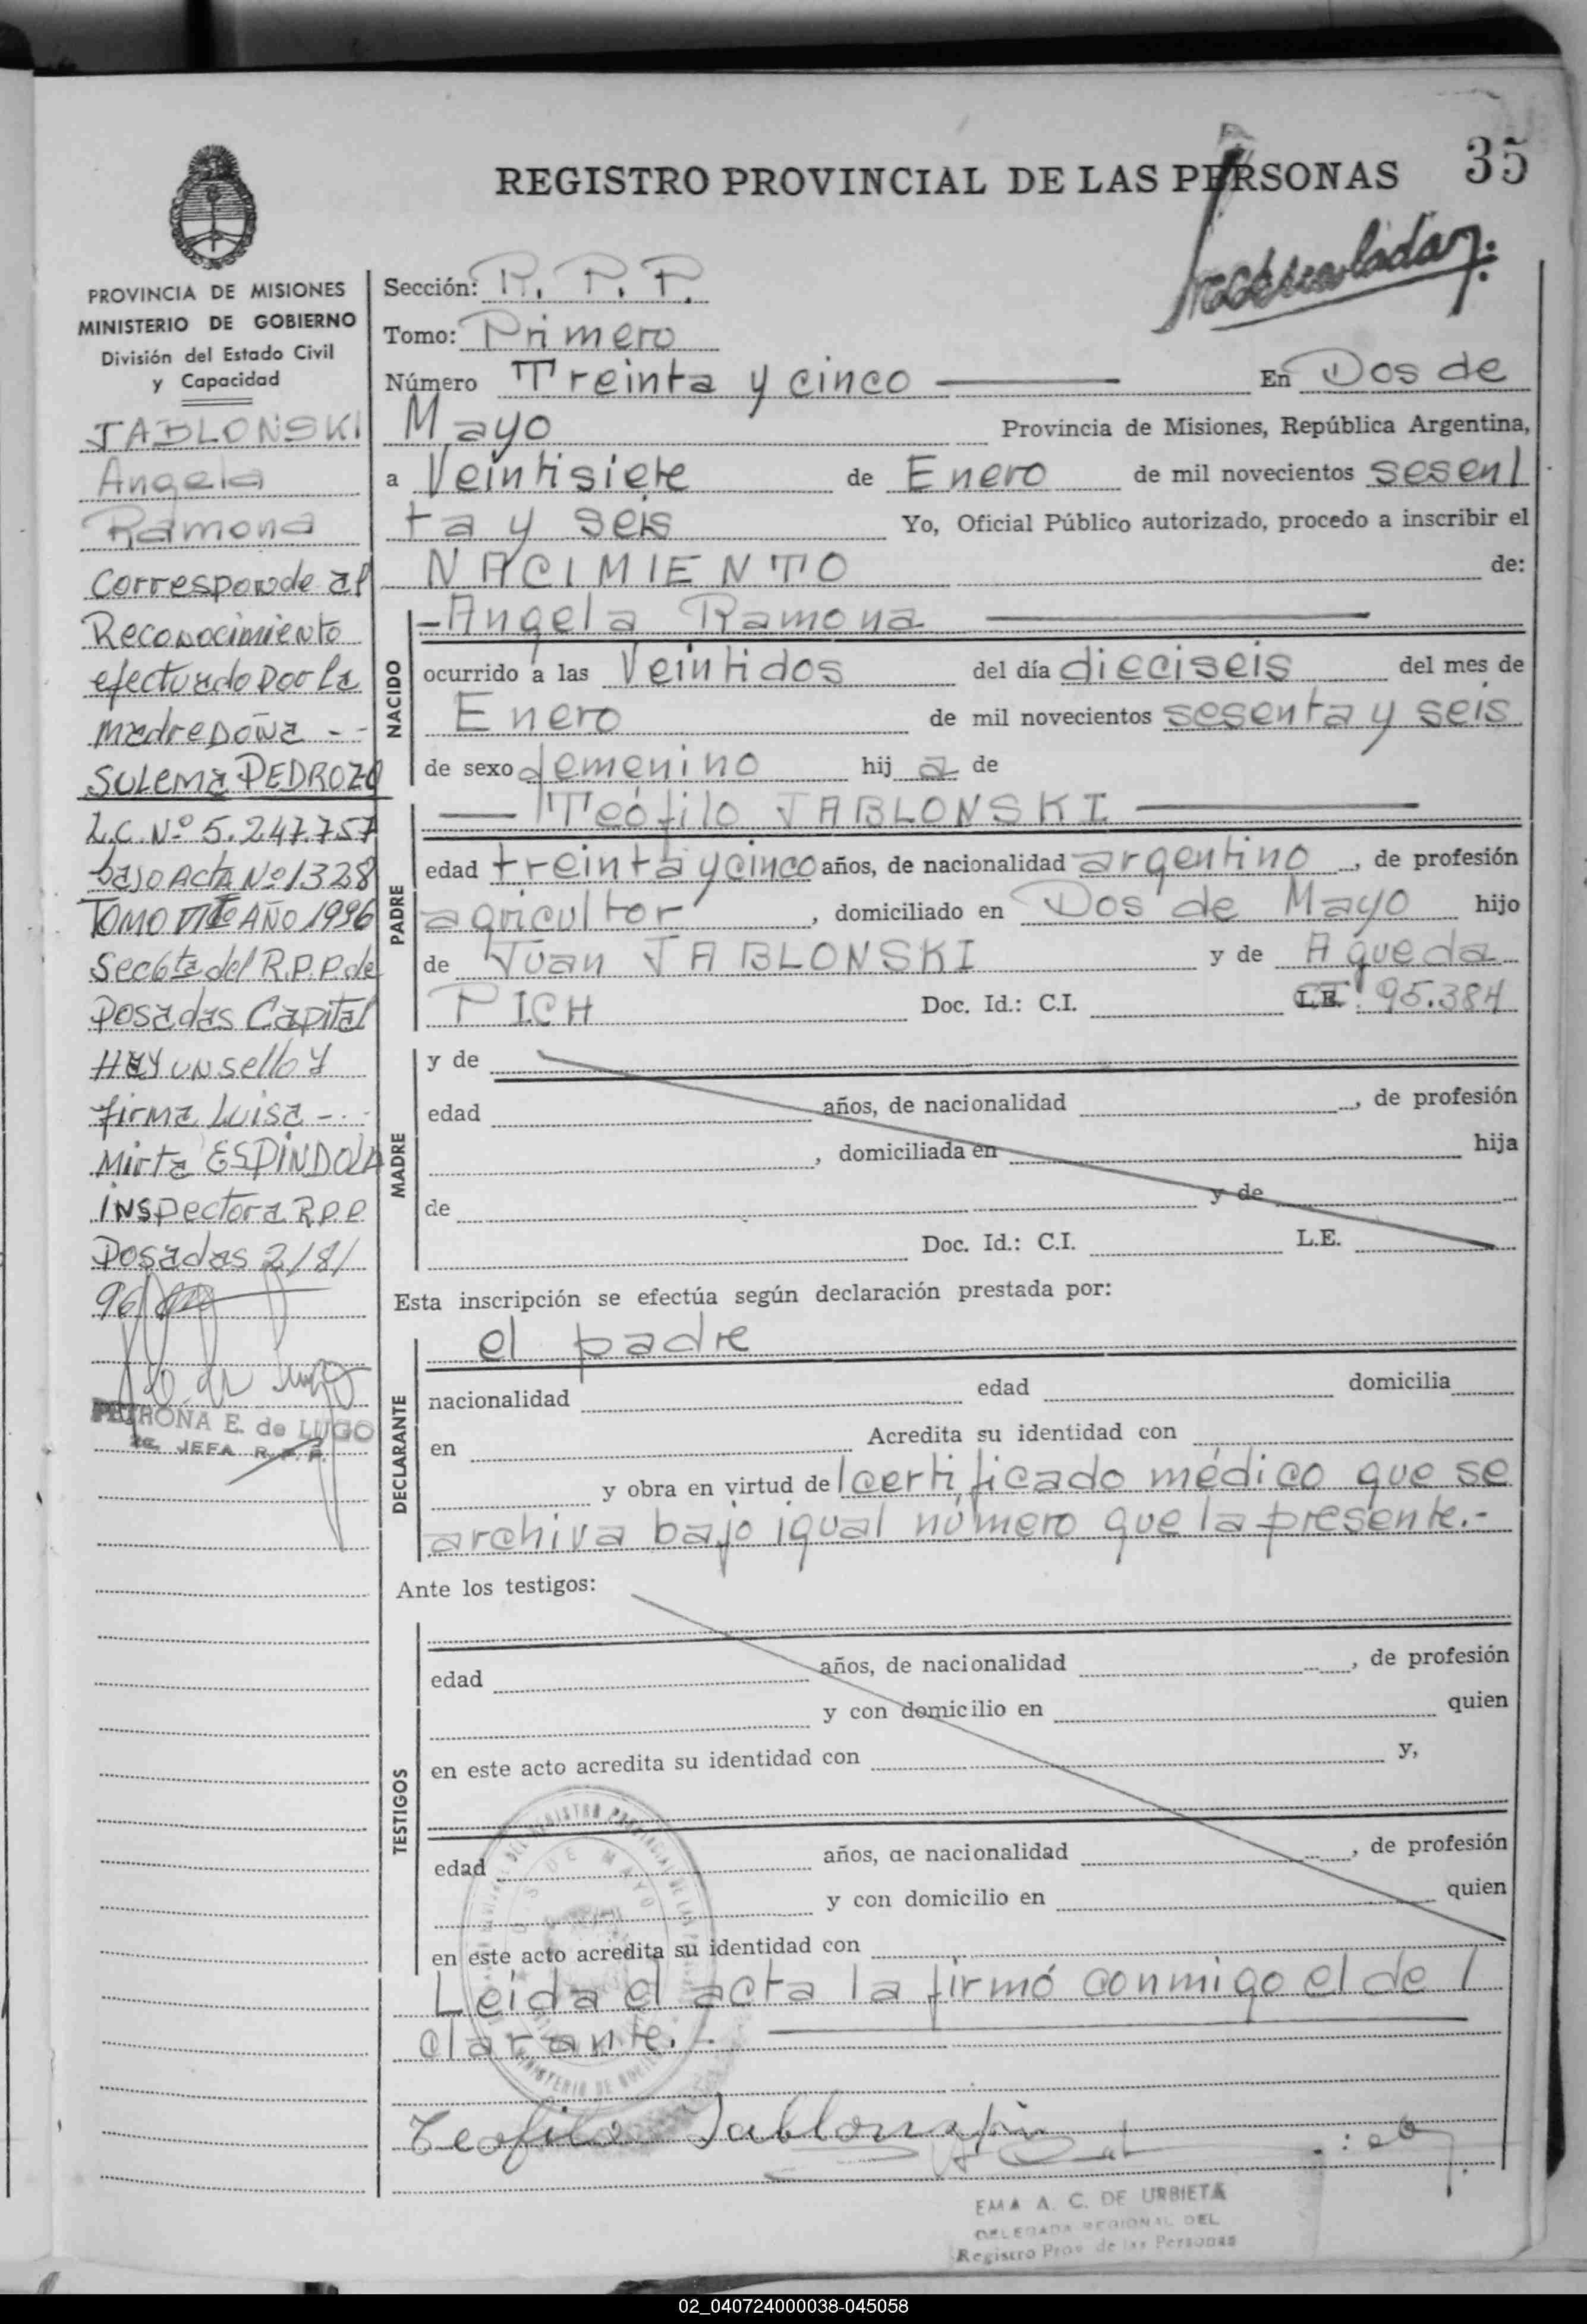 REGISTRO PROVINCIAL DE LAS PERSONAS 35
PROVINCIA DE MISIONES
MINISTERIO DE GOBIERNO
División del Estado Civil
y Capacidad
JABLONSKI
Angela
Ramona
Corresponde al
Reconocimiento
efectuado por la
madre Doña - -
SULEMA PEDROZO
L.C. Nº 5.247.757
bajo Acta Nº 1328
TOMO AÑO 1996
Secc 6ta del R.P.P de
Posadas Capital
HAY un sello y
firma Luisa -.-
Mirta ESPINDOLA
inspectora R.P.P
Posadas 2/8/
96
PETRONA E. de LUGO
2º. JEFA R.P.P.
Sección: R. P. P.
Tomo: Primero
Número Treinta y cinco En Dos de
Mayo Provincia de Misiones, República Argentina,
a Veintisiete de Enero de mil novecientos sesen/
ta y seis Yo, Oficial Público autorizado, procedo a inscribir el
NACIMIENTO de:
NACIDO
-Angela Ramona
ocurrido a las Veintidos del día dieciseis del mes de
Enero de mil novecientos sesenta y seis
de sexo femenino hij a de
PADRE
Teófilo JABLONSKI
edad treinta y cinco años, de nacionalidad argentino, de profesión
agricultor, domiciliado en Dos de Mayo hijo
de Juan JABLONSKI y de Agueda
PICH Doc. Id.: C.I. L.E. 95.384
MADRE
y de
edad años, de nacionalidad , de profesión
, domiciliada en hija
de y de
Doc. Id.: C.I. L.E.
Esta inscripción se efectúa según declaración prestada por:
DECLARANTE
el padre
nacionalidad edad domicilia
en Acredita su identidad con
y obra en virtud de/certificado médico que se
archiva bajo igual número que la presente.-
Ante los testigos:
TESTIGOS
edad años, de nacionalidad , de profesión
y con domicilio en quien
en este acto acredita su identidad con y,
edad años, de nacionalidad , de profesión
y con domicilio en quien
en este acto acredita su identidad con
Leída el acta la firmó conmigo el de/
clarante.-
Teofilo Jablonski
EMA A. C. DE URBIETA
DELEGADA REGIONAL DEL
Registro Prov. de las Personas
02_040724000038-045058